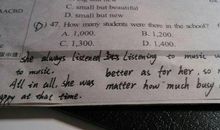 BACBD
C. small but beautiful
D. small but new
D) 47. How many students were there in the school?
A. 1,000. B. 1,200.
C, 1,300. D. 1,400.
she always listened listening to music w
to music. better as for her, so
All in all, she was matter how much busy
ppy at that time.